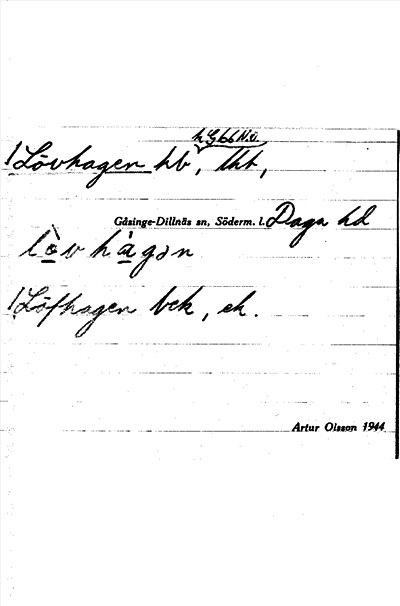 h Gbb N.v.
! Lövhagen hb, lht,
Gåsinge-Dillnäs sn, Söderm. l. Daga hd
lòvhágən
! Löfhagen bck, ek.
Artur Olsson 1944